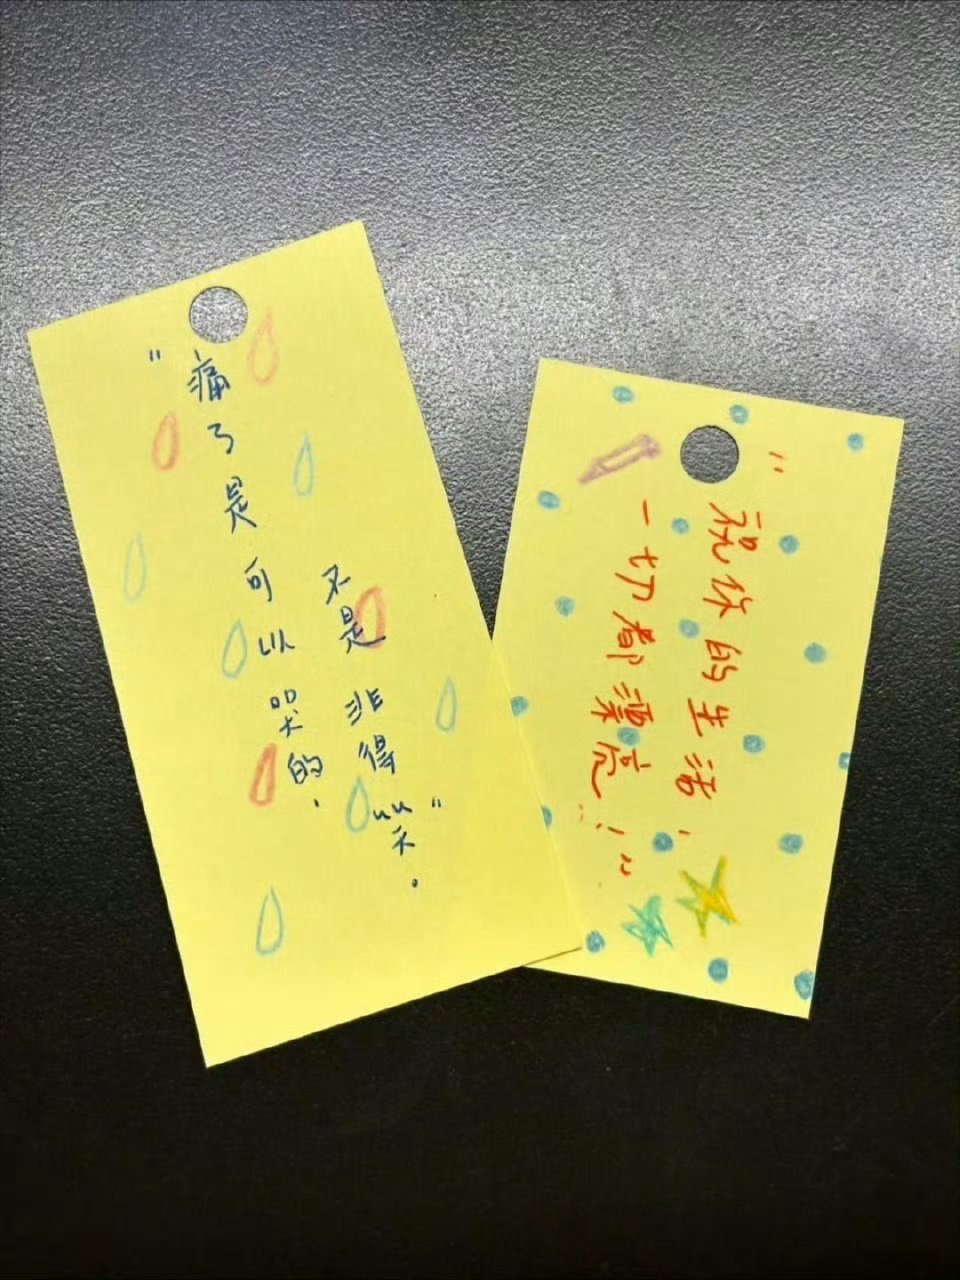 "痛了是可以哭的，
不是非得笑"。
"祝你的生活，
一切都漂亮！"